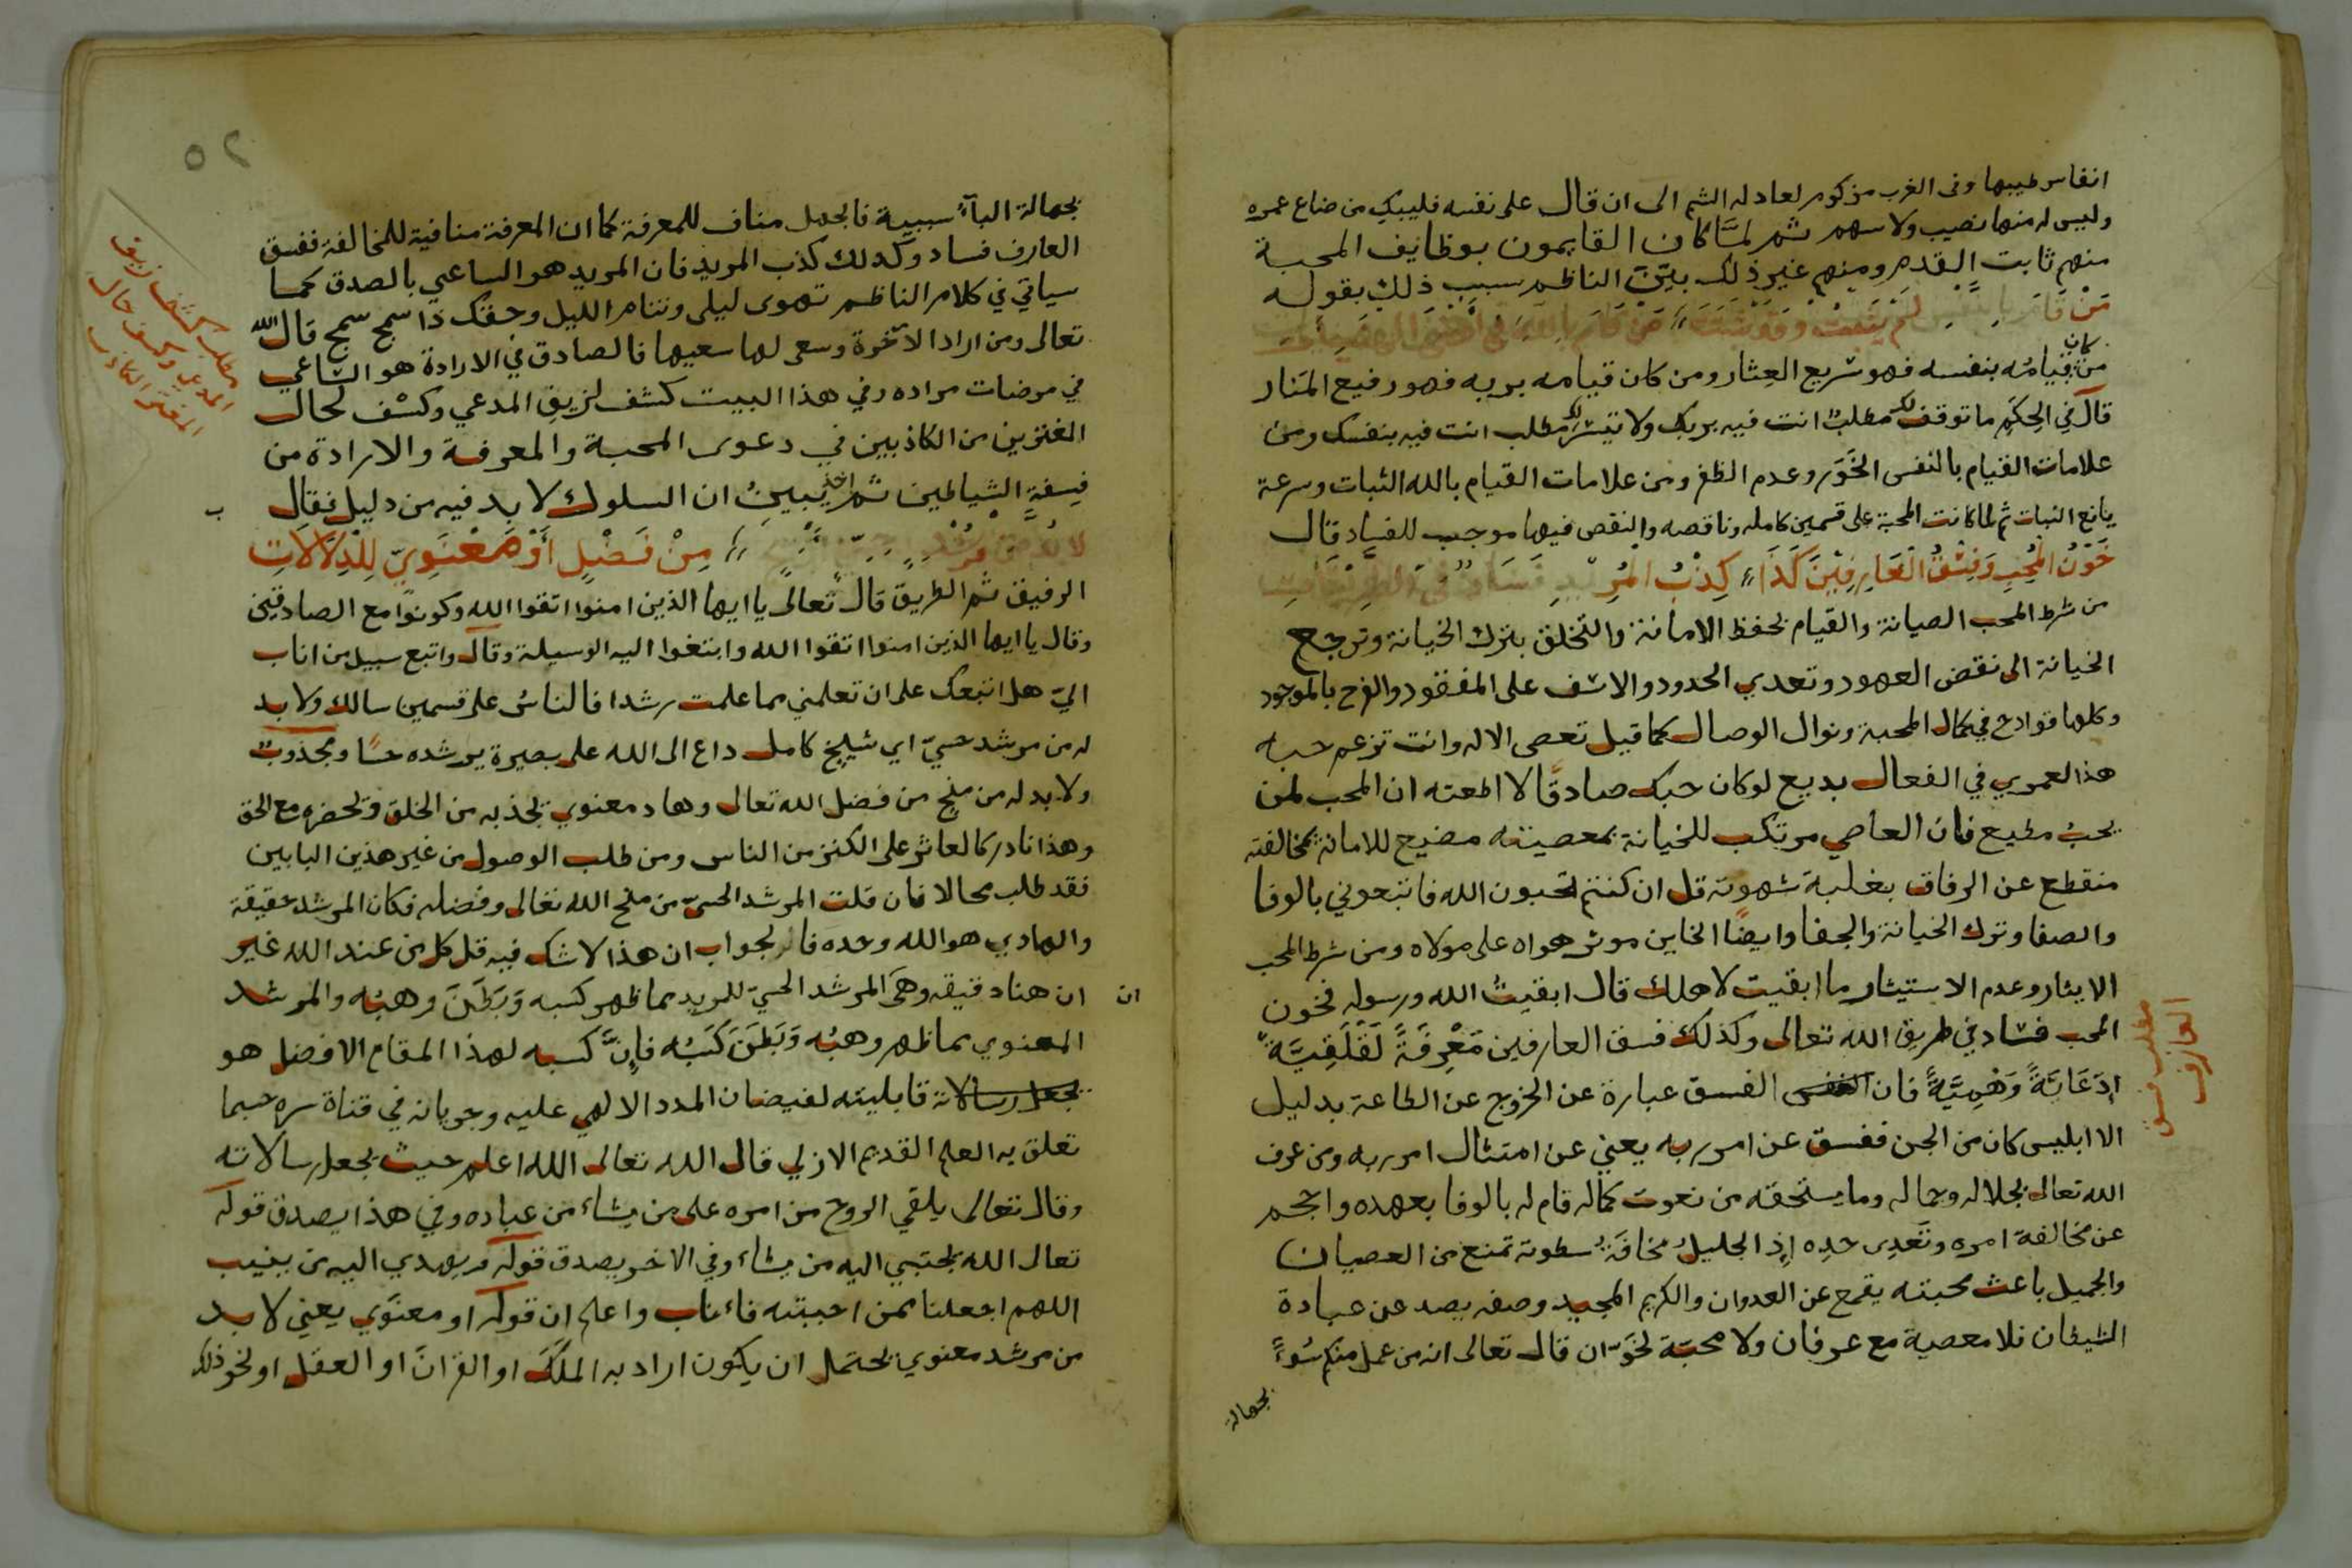 انفاس طيبها وفى الغرب مزكوم لعاد له الشم الى ان قال على نفسه فليبك من ضاع عمره
وليس له منها نصيب ولا سهم ثم لمَّا كان القايمون بوظايف المحبة
منهم ثابت القدم ومنهم غير ذلك بيّن الناظم سبب ذلك بقوله
مَنْ قَامَ بِالنَّفْسِ لَمْ يَثْبُتْ مَنْ قَامَ بِاللَّهِ فى
كان
من قيامُه بنفسه فهو سريع العِثار ومن كان قيامه بربه فهو رفيع المَنار
قال في الحِكَم ما توقف مطلبٌ انت فيه بربك ولا تيسّر مطلب انت فيه بنفسك ومن
علامات القيام بالنفس الخَوَر وعدم الظفر ومن علامات القيام بالله الثبات وسرعة
يانع النبات ثم لما كانت المحبة على قسمين كامله وناقصه والنقص فيها موجب للفساد قال
خَوْنُ المُحِبِ وَفِسْقُ الْعَارِفِيْنَ كَذَا كِذْبُ الْمُرِيْدِ فَسَادٌ فى الطريقات
من شرط المحب الصيانة والقيام بحفظ الامانة والتخلق بترك الخيانة وترجع
الخيانة الى نقض العهود وتعدي الحدود والاسف على المفقود والفرح بالموجود
وكلها قوادح في كمال المحبة ونوال الوصال كما قيل تعصى الاله وانت تزعم حبه
هذا لعمري في الفعال بديع لو كان حبك صادقًا لاطعته ان المحب لمن
يحبُ مطيع فان العاصي مرتكب للخيانة بمعصيته مضيع للامانة بمخالفته
منقطع عن الرفاق بغلبة شهوته قل ان كنتم تحبون الله فاتبعوني بالوفا
والصفا وترك الخيانة والجفا وايضًا الخاين موثر هواه على مولاه ومن شرط المحب
الايثار وعدم الاستيثار ما ابقيت لاهلك قال ابقيتُ الله ورسوله فخون
المحب فساد في طريق الله تعالى وكذلك فسق العارفين مَعْرِفَةً لَقْلَقِيَّةً
اِدّعَائيَّةً وَهْمِيَّةً فان الفسق عبارة عن الخروج عن الطاعة بدليل
الا ابليس كان من الجن ففسق عن امر ربه يعني عن امتثال امر ربه ومن عرف
الله تعالى بجلاله وجماله وما يستحقه من نعوت كماله قام له بالوفا بعهده واحجم
عن مخالفة امره وتَعَدِى حدِه اِذِ الجليلُ مخافةُ سطوته تمنع من العصيان
والجميل باعث محبته يقمع عن العدوان والكريم المجيد وصفه يصد عن عبادة
الشيطان فلا معصية مع عرفان ولا محبّة لخَوّان قال تعالى انه من عمل منكم سُوءً
بجهالة
مطلب فسق
العارف
٥٢
بجهالة البآءُ سببية فالجهل مناف للمعرفة كما ان المعرفة منافية للمخالفة ففسق
العارف فساد وكذلك كذب المريد فان المريد هو الساعي بالصدق كما
سياتي في كلام الناظم تهوى ليلى وتنام الليل وحقك ذا سمج سمج قال الله
تعالى ومن اراد الآخرة وسعى لها سعيها فالصادق في الارادة هو الساعي
في مرضات مراده وفي هذا البيت كشف لزيف المدعي وكشف لحال
المغترين من الكاذبين في دعوى المحبة والمعرفة والارادة من
فسقةِ الشياطين ثم اخذ يبينُ ان السلوك لا بد فيه من دليل فقال
لا بُدَّ مِنْ مُرْشِدٍ مِنْ فَضْلٍ أَوْ مَعْنَوِيّ لِلْدِلَالَاتِ
الرفيق ثم الطريق قال تعالى يا ايها الذين امنوا اتقوا الله وكونوا مع الصادقين
وقال يا ايها الذين امنوا اتقوا الله وابتغوا اليه الوسيلة وقال واتبع سبيل من اناب
اليّ هل اتبعك على ان تعلمني مما علمت رشدا فالناسُ على قسمين سالك ولا بد
له من مرشد حسيّ اي شيخ كامل داع الى الله على بصيرة يرشده حسًا ومجذوب
ولا بد له من منح من فضل الله تعالى وهاد معنوي تجذبه من الخلق وتحضره مع الحق
وهذا نادر كالعاثر على الكنز من الناس ومن طلب الوصول من غير هذين البابين
فقد طلب محالا فان قلت المرشد الحسيّ من منح الله تعالى وفضله فكان المرشد حقيقة
والهادي هو الله وحده فالجواب ان هذا لا شك فيه قل كل من عند الله غير
ان هنا دقيقه وهى المرشد الحسيّ للمريد مما ظهر كسبه وَبَطَنَ وهبُه والمرشد
المعنوي مما ظهر وهبُه وَبَطَنَ كَسْبُه فاِنَّ كسبه لهذا المقام الافضل هو
قابليته لفيضان المدد الالهي عليه وجريانه في قناة سره حيما
تعلق به العلم القديم الازلي قال الله تعالى الله اعلم حيث يجعل رسالاته
وقال تعالى يلقي الروح من امره على من يشاء من عباده وفي هذا يصدق قوله
تعالى الله يجتبي اليه من يشاء وفي الاخر يصدق قوله ويهدي اليه من ينيب
اللهم اجعلنا ممن احببته فاءناب واعلم ان قوله او معنَوي يعني لا بد
من مرشد معنوي يحتمل ان يكون اراد به الملَكَ او القرآنَ او العقل او نحو ذلك
مطلب كشف زيف
المدعي وكشف حال
المغتر الكاذب